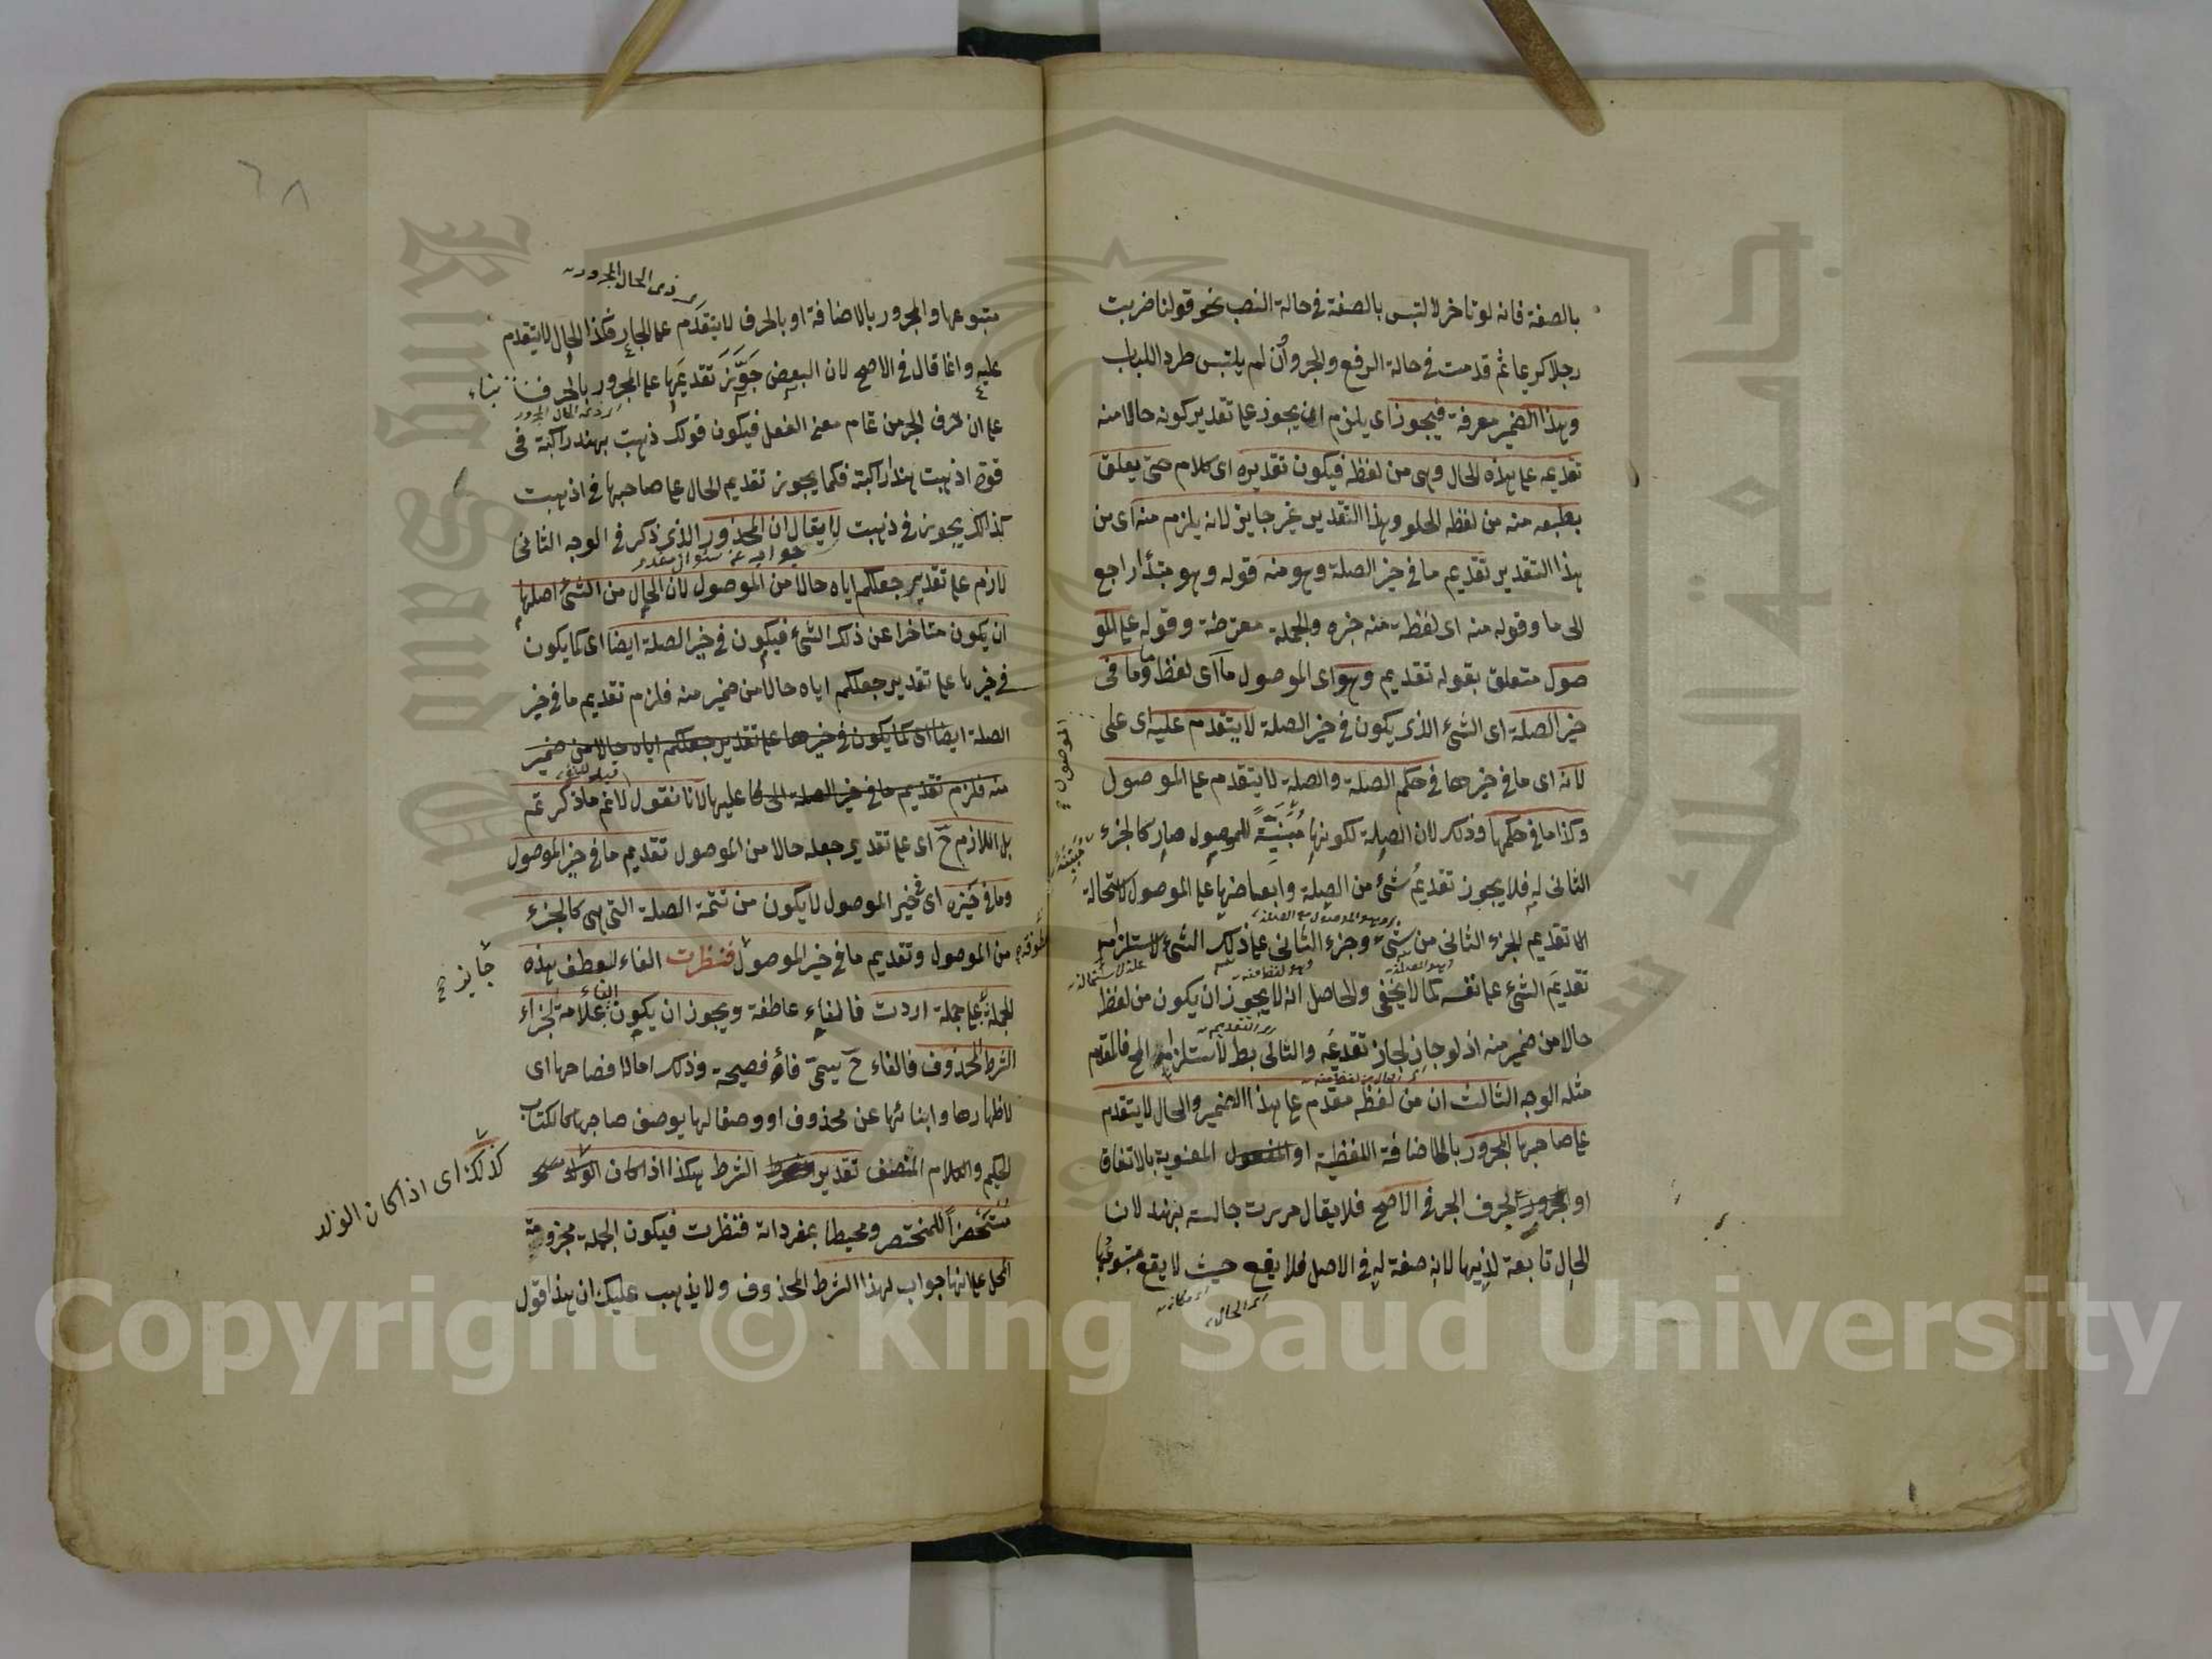 بالصفة فانه لو تاخر لالتبس بالصفة في حالة النصب نحو قولنا ضربت
رجلا كريما ثم قدمت في حالة الرفع والجر وان لم يلتبس طردا للباب
وهذا الضمير معرفة فيجوز اى يلزم ان يجوز على تقدير كونه حالا منه
تقديمه على هذه الحال وهى من لفظه فيكون تقديره اى كلام حتى يعلق
بطبعه منه من لفظه الحلو وهذا التقدير غير جايز لانه يلزم منه اى من
هذا التقدير تقديم ما في حيز الصلة وهو منه قوله وهو مبتدأ راجع
الى ما وقوله منه اى لفظة منه خبره والجملة معترضة وقوله على المو
صول متعلق بقوله تقديم وهو اى الموصول ما اى لفظ ما وما فى
حيز الصلة اى الشئ الذى يكون في حيز الصلة لا يتقدم عليه اى على
الموصول
لانه اى ما في حيزها في حكم الصلة والصلة لا يتقدم على الموصول
وكذا ما في حكمها وذلك لان الصلة لكونها مُبَيِّنَةً للموصول صار كالجزء
الثانى له فلا يجوز تقديم شئ من الصلة وابعاضها على الموصول لاستحالة
تقديم الجزء الثانى من شئ وجزء الثانى على ذلك الشئ لاستلزامه
تقديم الشئ على نفسه كما لا يخفى والحاصل انه لا يجوز ان يكون من لفظه
حالا من ضمير منه اذ لو جاز لجاز تقديمه والتالى بط لاستلزامه المح فالمقدم
مثله الوجه الثالث ان من لفظه مقدم على هذا الضمير والحال لا يتقدم
على صاحبها المجرور بالاضافة اللفظية او المعنوية بالاتفاق
او بحرف الجر في الاصح فلا يقال مررت جالسة بهند لان
الحال تابعة لذيها لانه صفة له في الاصل فلا يقع حيث لا يقع متبوعها
اى الحال
٦٨
اى ذى الحال المجرور
متبوعها والمجرور بالاضافة او بالحرف لا يتقدم على الجار فكذا الحال لا يتقدم
عليه وانما قال في الاصح لان البعض جَوَّزَ تقديمَها على المجرور بالحرف بناء
على ان حرف الجر من تمام معنى الفعل فيكون قولك ذهبت بهند راكبة فى
قوة اذهبت هندا راكبة فكما يجوز تقديم الحال على صاحبها في اذهبت
كذلك يجوز في ذهبت لا يقال ان المحذور الذى ذكر في الوجه الثانى
جواب عن سئوال مقدر
لازم على تقدير جعلكم اياه حالا من الموصول لان الحال من الشئ اصلها
ان يكون متاخرا عن ذلك الشئ فيكون في حيز الصلة ايضا اى كما يكون
في حيزها على تقدير جعلكم اياه حالا من ضمير منه فلزم تقديم ما في حيز
الصلة ايضا اى كما يكون في حيزها على تقدير جعلكم اياه حالا من ضمير
منه فلزم تقديم ما في حيز الصلة عليها لانا نقول لانم ما ذكرتم
بل اللازم ح اى على تقدير جعله حالا من الموصول تقديم ما في حيز الموصول
وما في حيزه اى في حيز الموصول لا يكون من تتمة الصلة التى هى كالجزء
من الموصول وتقديم ما في حيز الموصول فنظرت الفاء للعطف هذه
جايز صح
الجملة على جملة اردت فالفاء عاطفة ويجوز ان يكون الفاء علامة لجزاء
الشرط المحذوف فالفاء ح يسمى فاء فصيحة وذلك اما لافصاحها اى
لاظهارها وانبائها عن محذوف او وصفا لها بوصف صاحبها كالكتاب
الحكيم والكلام المنصف تقدير الشرط هكذا اذا كان الولد
كذلك اى اذا كان الولد
مُستَحضِراً للمختصر ومحيطا بمفرداته فنظرت فيكون الجملة مجزومة
المحل على انها جواب لهذا الشرط المحذوف ولا يذهب عليك ان هذا قول
Copyright © King Saud University
King Saud University
جامعة الملك سعود
1957